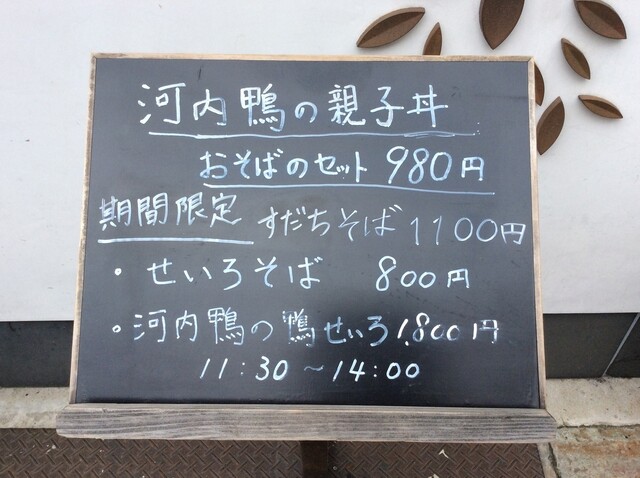 河内鴨の親子丼
おそばのセット 980円
期間限定 すだちそば 1100円
・せいろそば 800円
・河内鴨の鴨せいろ 1,800円
11:30～14:00